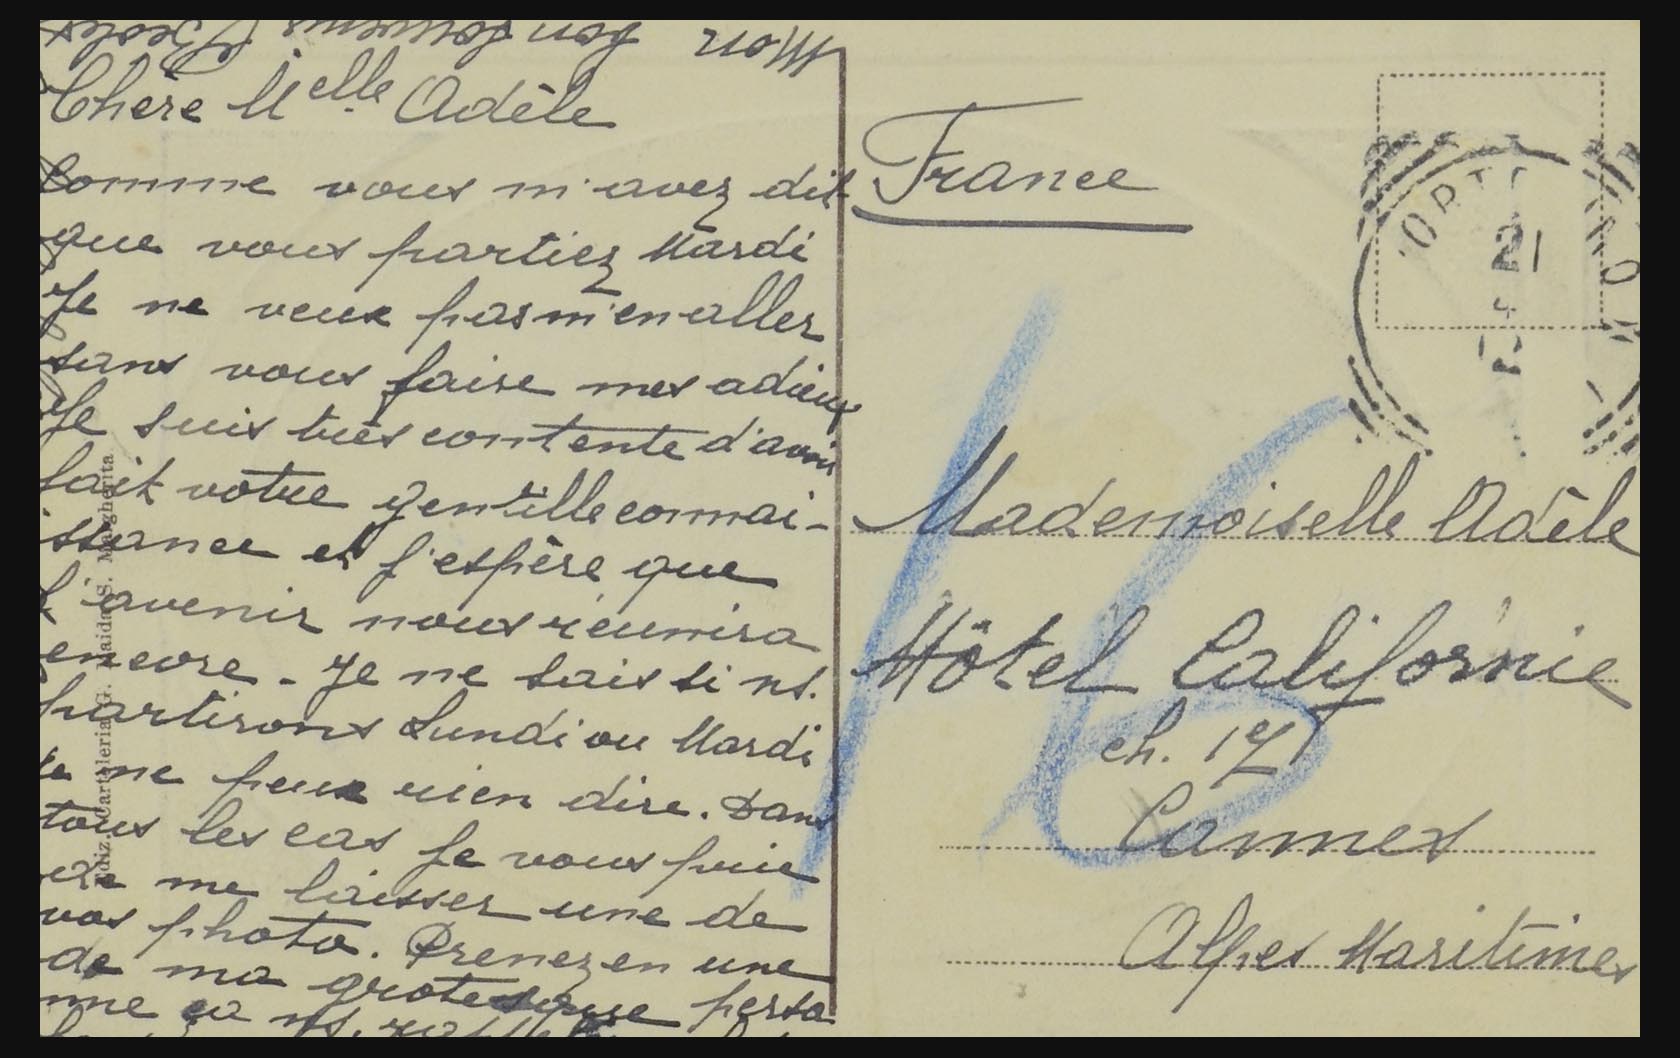 Mon bon souvenir
Chère Melle Adèle
Comme vous m'avez dit
que vous partiez Mardi
Je ne veux pas m'en aller
sans vous faire mes adieux
Je suis très contente d'avoir
fait votre gentille connai-
ssance et j'espère que
l'avenir nous réunira
encore - Je ne sais si ns.
partirons Lundi ou Mardi
Je ne peux rien dire. Dans
tous les cas je vous prie
de me laisser une de
vos photo. Prenez en une
de ma grotesque perso
nne ça ns.
France
Mademoiselle Adèle
Hôtel Californie
ch. 17
Cannes
Alpes Maritimes
16
21
Ediz. Cartoleria G. Maida S. Margherita